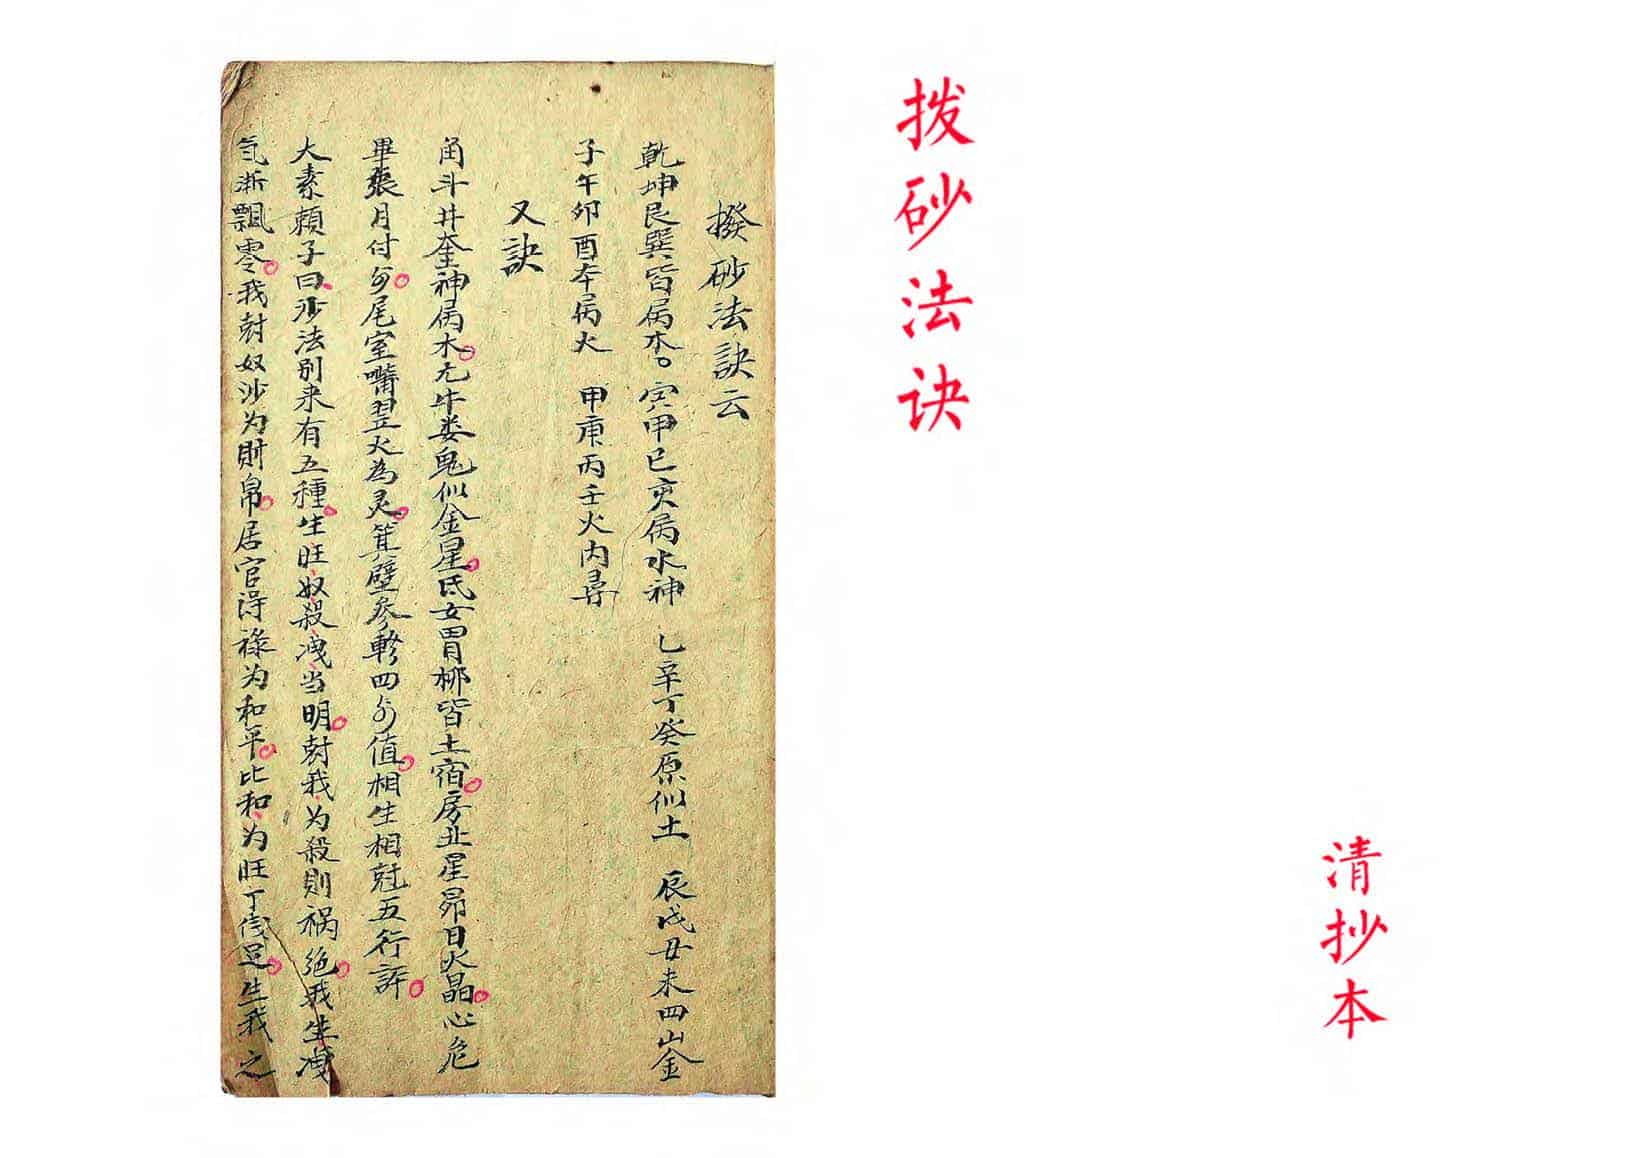 拨砂法诀
清抄本
撥砂法訣云
乾坤艮巽皆属木。寅甲巳亥属水神 乙辛丁癸原似土 辰戌丑未四山金
子午卯酉本属火 甲庚丙壬火内尋
又訣
角斗井奎神属木亢牛娄鬼似金星氐女胃柳皆土宿房虚星昴日火晶心危
畢張月付身尾室嘴翌火為灵箕壁參軫四水值相生相尅五行評
大素賴子曰沙法别来有五種生旺奴殺洩当明尅我为殺則祸绝我生洩
氣渐飄零我尅奴沙为財帛居官得禄为和平比和为旺丁儀足生我之